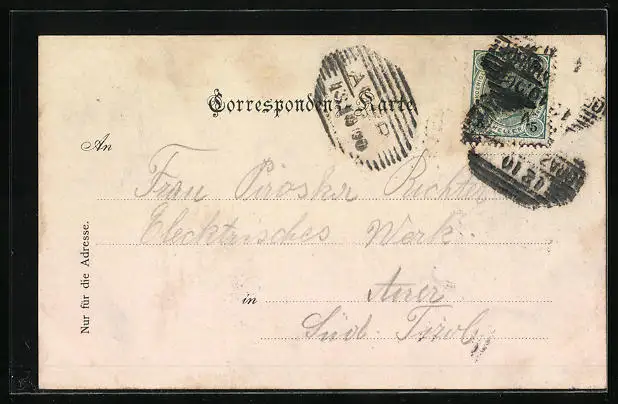 Correspondenz-Karte
An
Frau Piroska Richter
Elecktrisches Werk.
in Auer
Süd-Tirol
Nur für die Adresse.